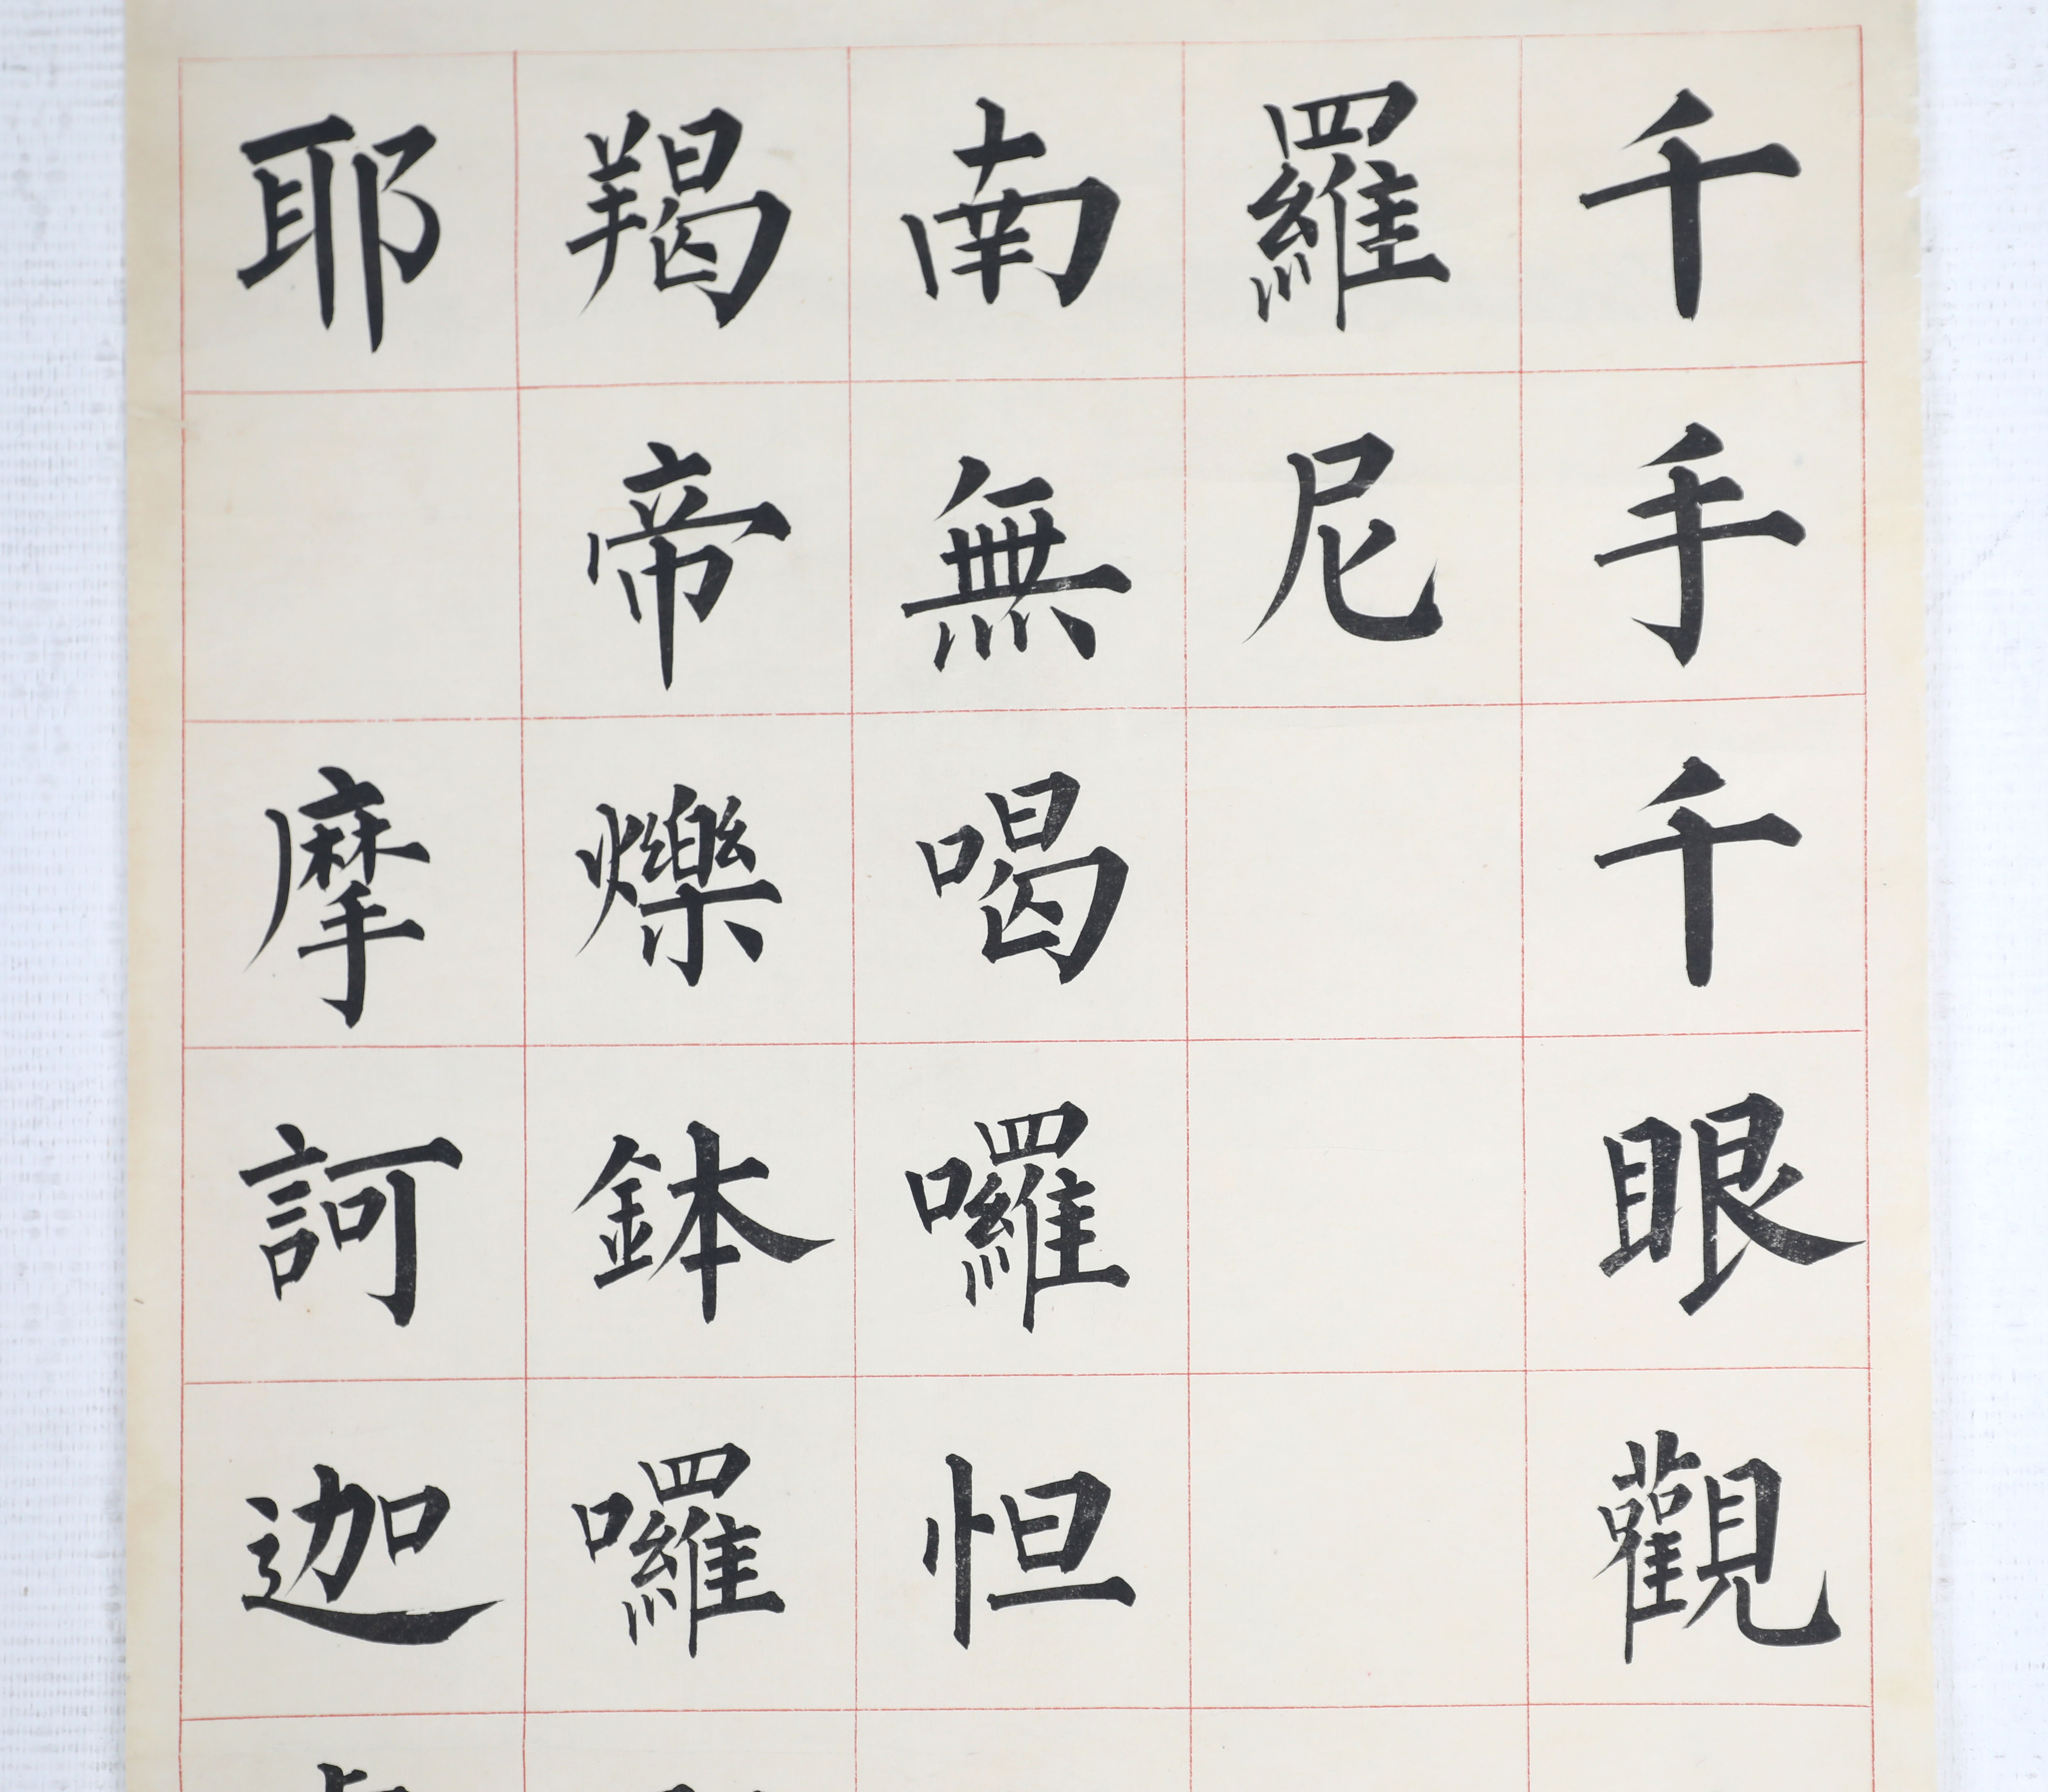 千手千眼觀
羅尼
南無喝囉怛
羯帝爍鉢囉
耶 摩訶迦